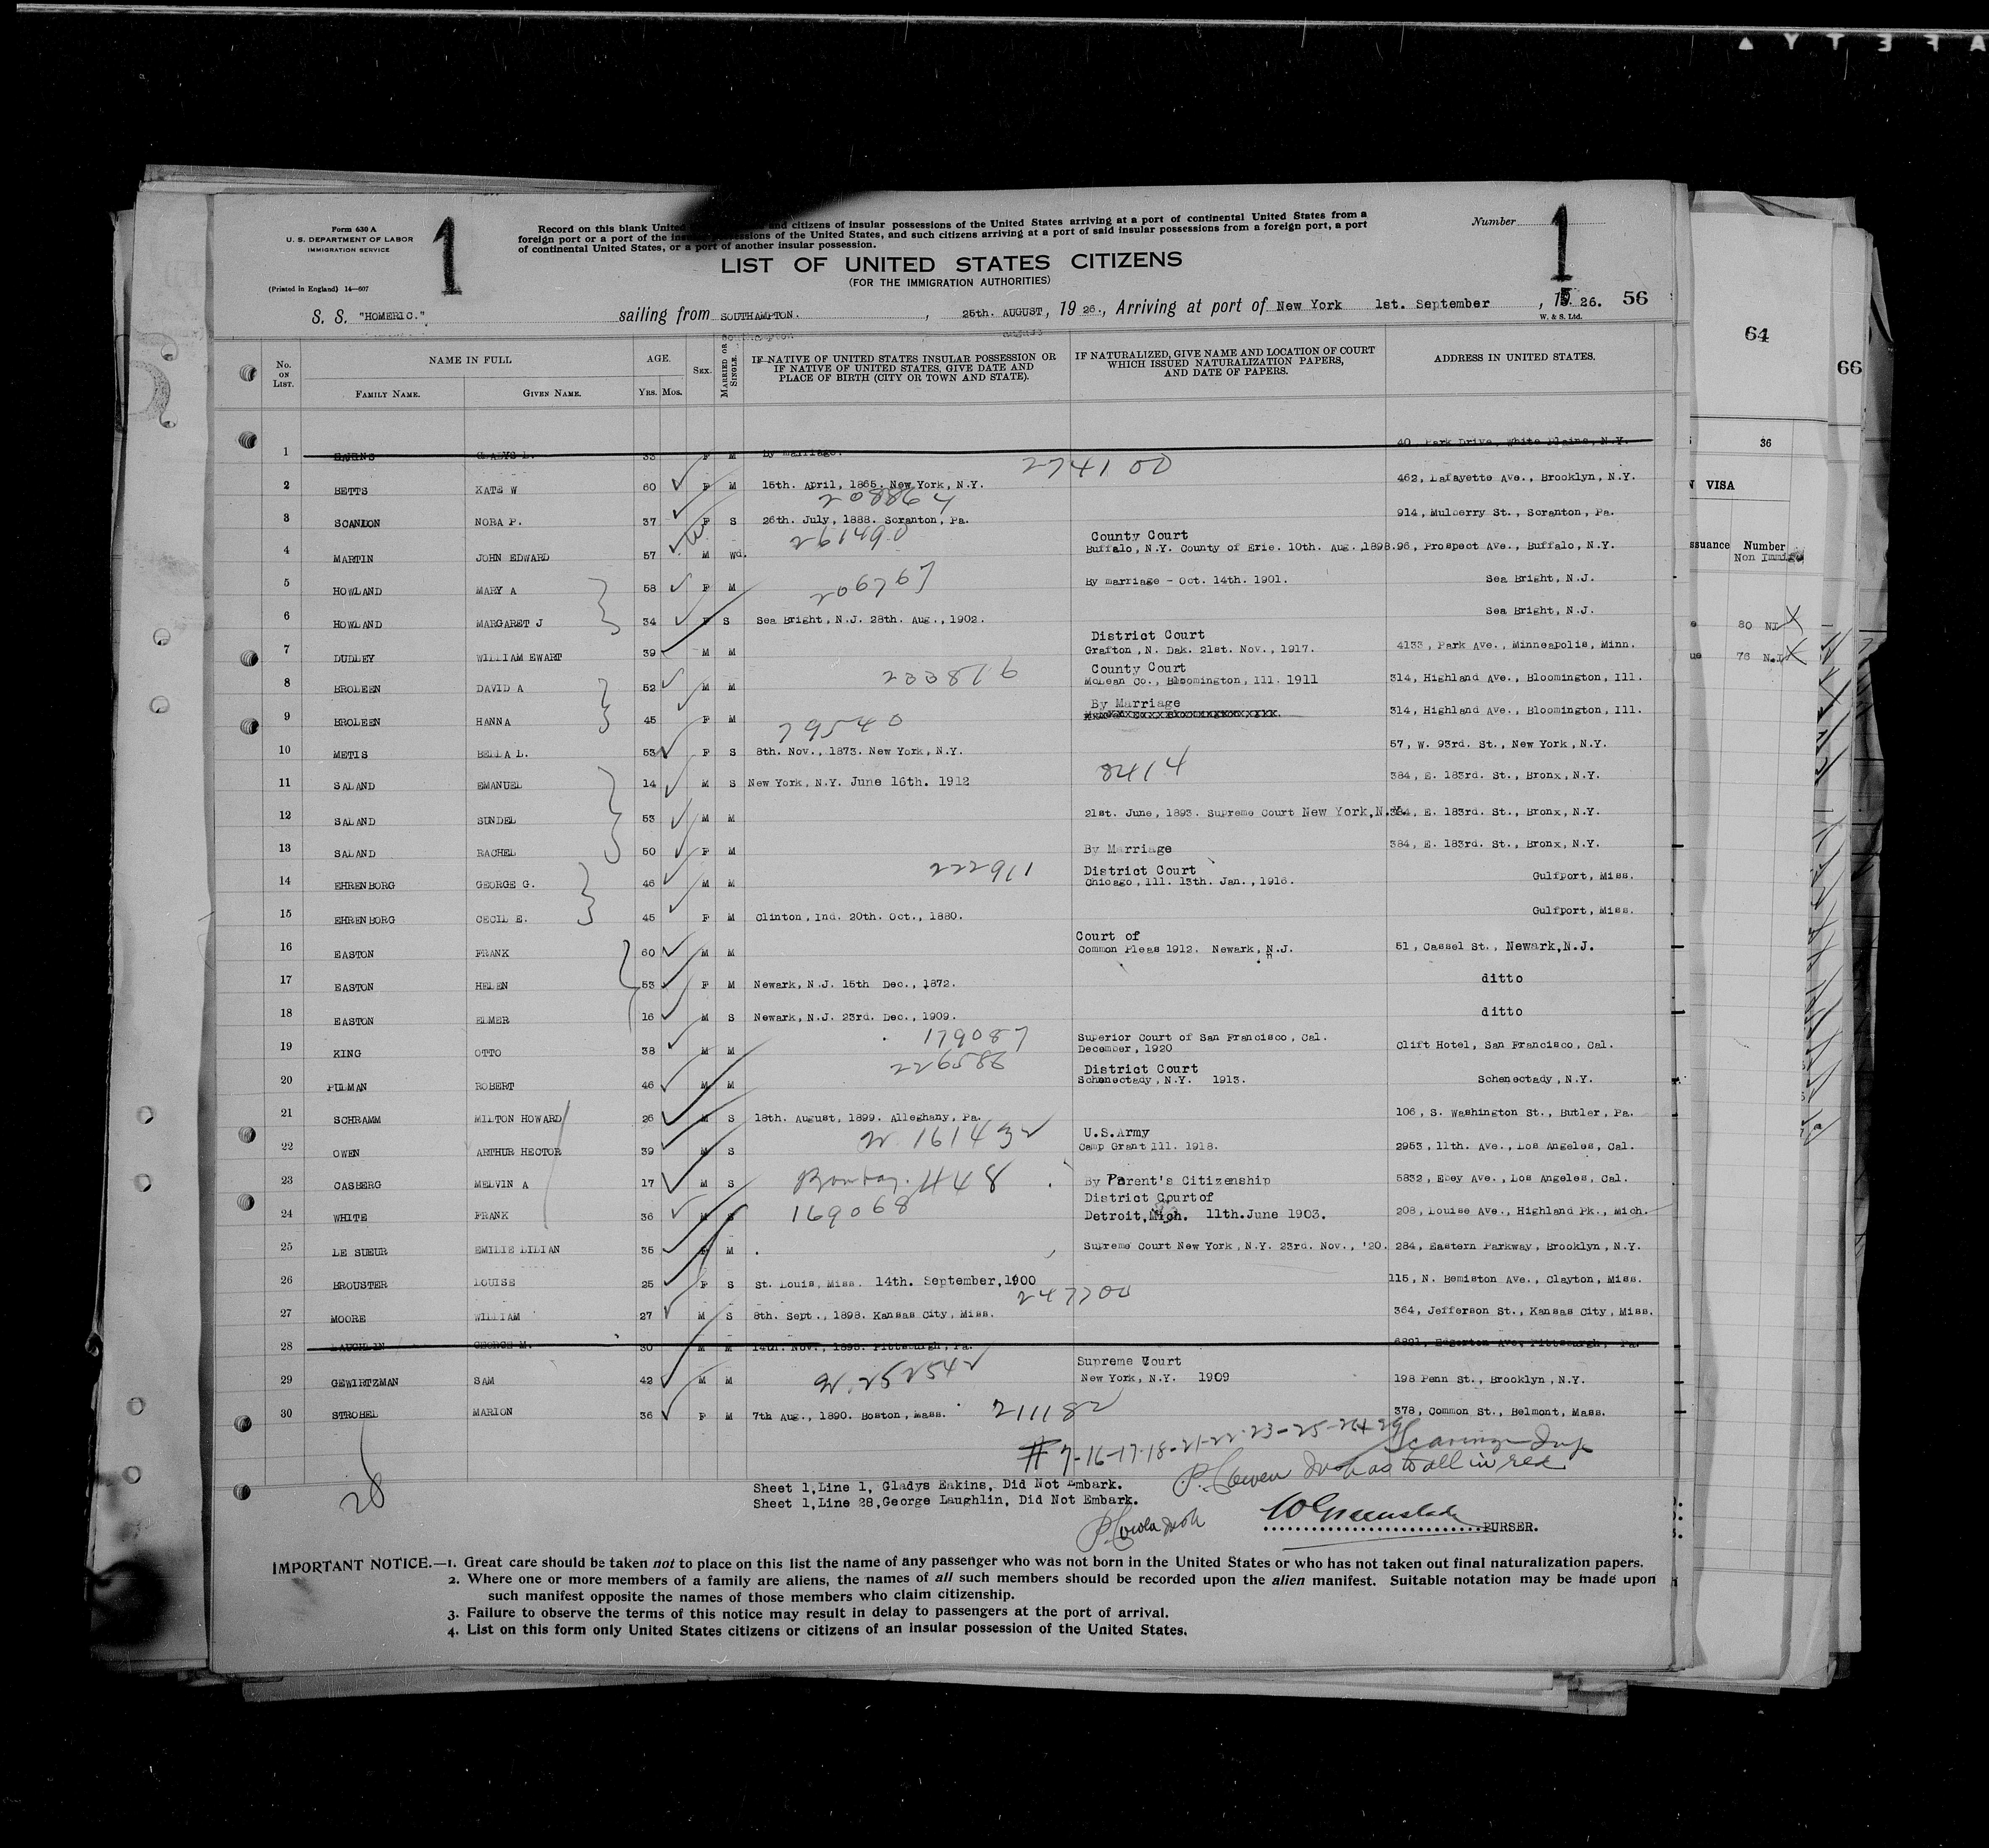 SAFETY
Form 630 A
U. S. DEPARTMENT OF LABOR
IMMIGRATION SERVICE
(Printed in England) 14—607
1
Record on this blank United and citizens of insular possessions of the United States arriving at a port of continental United States from a
foreign port or a port of the insular possessions of the United States, and such citizens arriving at a port of said insular possessions from a foreign port, a port
of continental United States, or a port of another insular possession.
Number 1
LIST OF UNITED STATES CITIZENS
(FOR THE IMMIGRATION AUTHORITIES)
S. S. "HOMERIC." sailing from SOUTHAMPTON. , 25th. AUGUST, 19 26., Arriving at port of New York 1st. September , 1926. 56
W. & S. Ltd.
No. ON LIST. NAME IN FULL AGE. SEX. MARRIED OR SINGLE. IF NATIVE OF UNITED STATES INSULAR POSSESSION OR IF NATIVE OF UNITED STATES, GIVE DATE AND PLACE OF BIRTH (CITY OR TOWN AND STATE). IF NATURALIZED, GIVE NAME AND LOCATION OF COURT WHICH ISSUED NATURALIZATION PAPERS, AND DATE OF PAPERS. ADDRESS IN UNITED STATES.
FAMILY NAME. GIVEN NAME. YRS. MOS.
1 EAKINS GLADYS L. 33 F M By marriage. 40, Park Drive, White Plains, N.Y.
274100
2 BETTS KATE W 60 F M 15th. April, 1865. New York, N.Y. 462, Lafayette Ave., Brooklyn, N.Y.
3 SCANLON NORA P. 37 F S 26th. July, 1888. Scranton, Pa. 914, Mulberry St., Scranton, Pa.
County Court
4 MARTIN JOHN EDWARD 57 M Wd. Buffalo, N.Y. County of Erie. 10th. Aug. 1898. 96, Prospect Ave., Buffalo, N.Y.
5 HOWLAND MARY A 58 F M By marriage - Oct. 14th. 1901. Sea Bright, N.J.
6 HOWLAND MARGARET J 34 F S Sea Bright, N.J. 28th. Aug., 1902. Sea Bright, N.J.
District Court
7 DUDLEY WILLIAM EWART 39 M M Grafton, N. Dak. 21st. Nov., 1917. 4133, Park Ave., Minneapolis, Minn.
County Court
8 BROLEEN DAVID A 52 M M McLean Co., Bloomington, Ill. 1911 314, Highland Ave., Bloomington, Ill.
By Marriage
9 BROLEEN HANNA 45 F M 314, Highland Ave., Bloomington, Ill.
79540
10 METIS BELLA L. 53 F S 8th. Nov., 1873. New York, N.Y. 57, W. 93rd. St., New York, N.Y.
8414
11 SALAND EMANUEL 14 M S New York, N.Y. June 16th. 1912 384, E. 183rd. St., Bronx, N.Y.
12 SALAND SUNDEL 53 M M 21st. June, 1893. Supreme Court New York, N.Y. 384, E. 183rd. St., Bronx, N.Y.
13 SALAND RACHEL 50 F M By Marriage 384, E. 183rd. St., Bronx, N.Y.
222911 District Court
14 EHRENBORG GEORGE G. 46 M M Chicago, Ill. 13th. Jan., 1916. Gulfport, Miss.
15 EHRENBORG CECIL E. 45 F M Clinton, Ind. 20th. Oct., 1880. Gulfport, Miss.
Court of
16 EASTON FRANK 60 M M Common Pleas 1912. Newark, N.J. 51, Cassel St., Newark, N.J.
17 EASTON HELEN 53 F M Newark, N.J. 15th Dec., 1872. ditto
18 EASTON ELMER 16 M S Newark, N.J. 23rd. Dec., 1909. ditto
179087 Superior Court of San Francisco, Cal.
19 KING OTTO 38 M M December, 1920 Clift Hotel, San Francisco, Cal.
226588 District Court
20 PULMAN ROBERT 46 M M Schenectady, N.Y. 1913. Schenectady, N.Y.
21 SCHRAMM MILTON HOWARD 26 M S 18th. August, 1899. Alleghany, Pa. 106, S. Washington St., Butler, Pa.
U.S.Army
22 OWEN ARTHUR HECTOR 39 M S Camp Grant Ill. 1918. 2953, 11th. Ave., Los Angeles, Cal.
23 CASBERG MELVIN A 17 M S Bombay. By Parent's Citizenship 5832, Ebey Ave., Los Angeles, Cal.
169068 District Court of
24 WHITE FRANK 36 M S Detroit, Mich. 11th. June 1903. 208, Louise Ave., Highland Pk., Mich.
25 LE SUEUR EMILIE LILIAN 35 F M Supreme Court New York, N.Y. 23rd. Nov., '20. 284, Eastern Parkway, Brooklyn, N.Y.
26 BROUSTER LOUISE 25 F S St. Louis, Miss. 14th. September, 1900 115, N. Bemiston Ave., Clayton, Miss.
247700
27 MOORE WILLIAM 27 M S 8th. Sept., 1898. Kansas City, Miss. 364, Jefferson St., Kansas City, Miss.
28 LAUGHLIN GEORGE M. 30 M M 14th. Nov., 1895. Pittsburgh, Pa. Edgerton Ave, Pittsburgh, Pa.
Supreme Court
29 GEWIRTZMAN SAM 42 M M New York, N.Y. 1909 198 Penn St., Brooklyn, N.Y.
30 STROBEL MARION 36 F M 7th Aug., 1890. Boston, Mass. 211182 378, Common St., Belmont, Mass.
# 7-16-17-18-21-22-23-25-26+29
28
Sheet 1, Line 1, Gladys Eakins, Did Not Embark.
Sheet 1, Line 28, George Laughlin, Did Not Embark.
PURSER.
IMPORTANT NOTICE.—1. Great care should be taken not to place on this list the name of any passenger who was not born in the United States or who has not taken out final naturalization papers.
2. Where one or more members of a family are aliens, the names of all such members should be recorded upon the alien manifest. Suitable notation may be made upon
such manifest opposite the names of those members who claim citizenship.
3. Failure to observe the terms of this notice may result in delay to passengers at the port of arrival.
4. List on this form only United States citizens or citizens of an insular possession of the United States.
64
66
36
VISA
Number
80 NI
76 N.I.